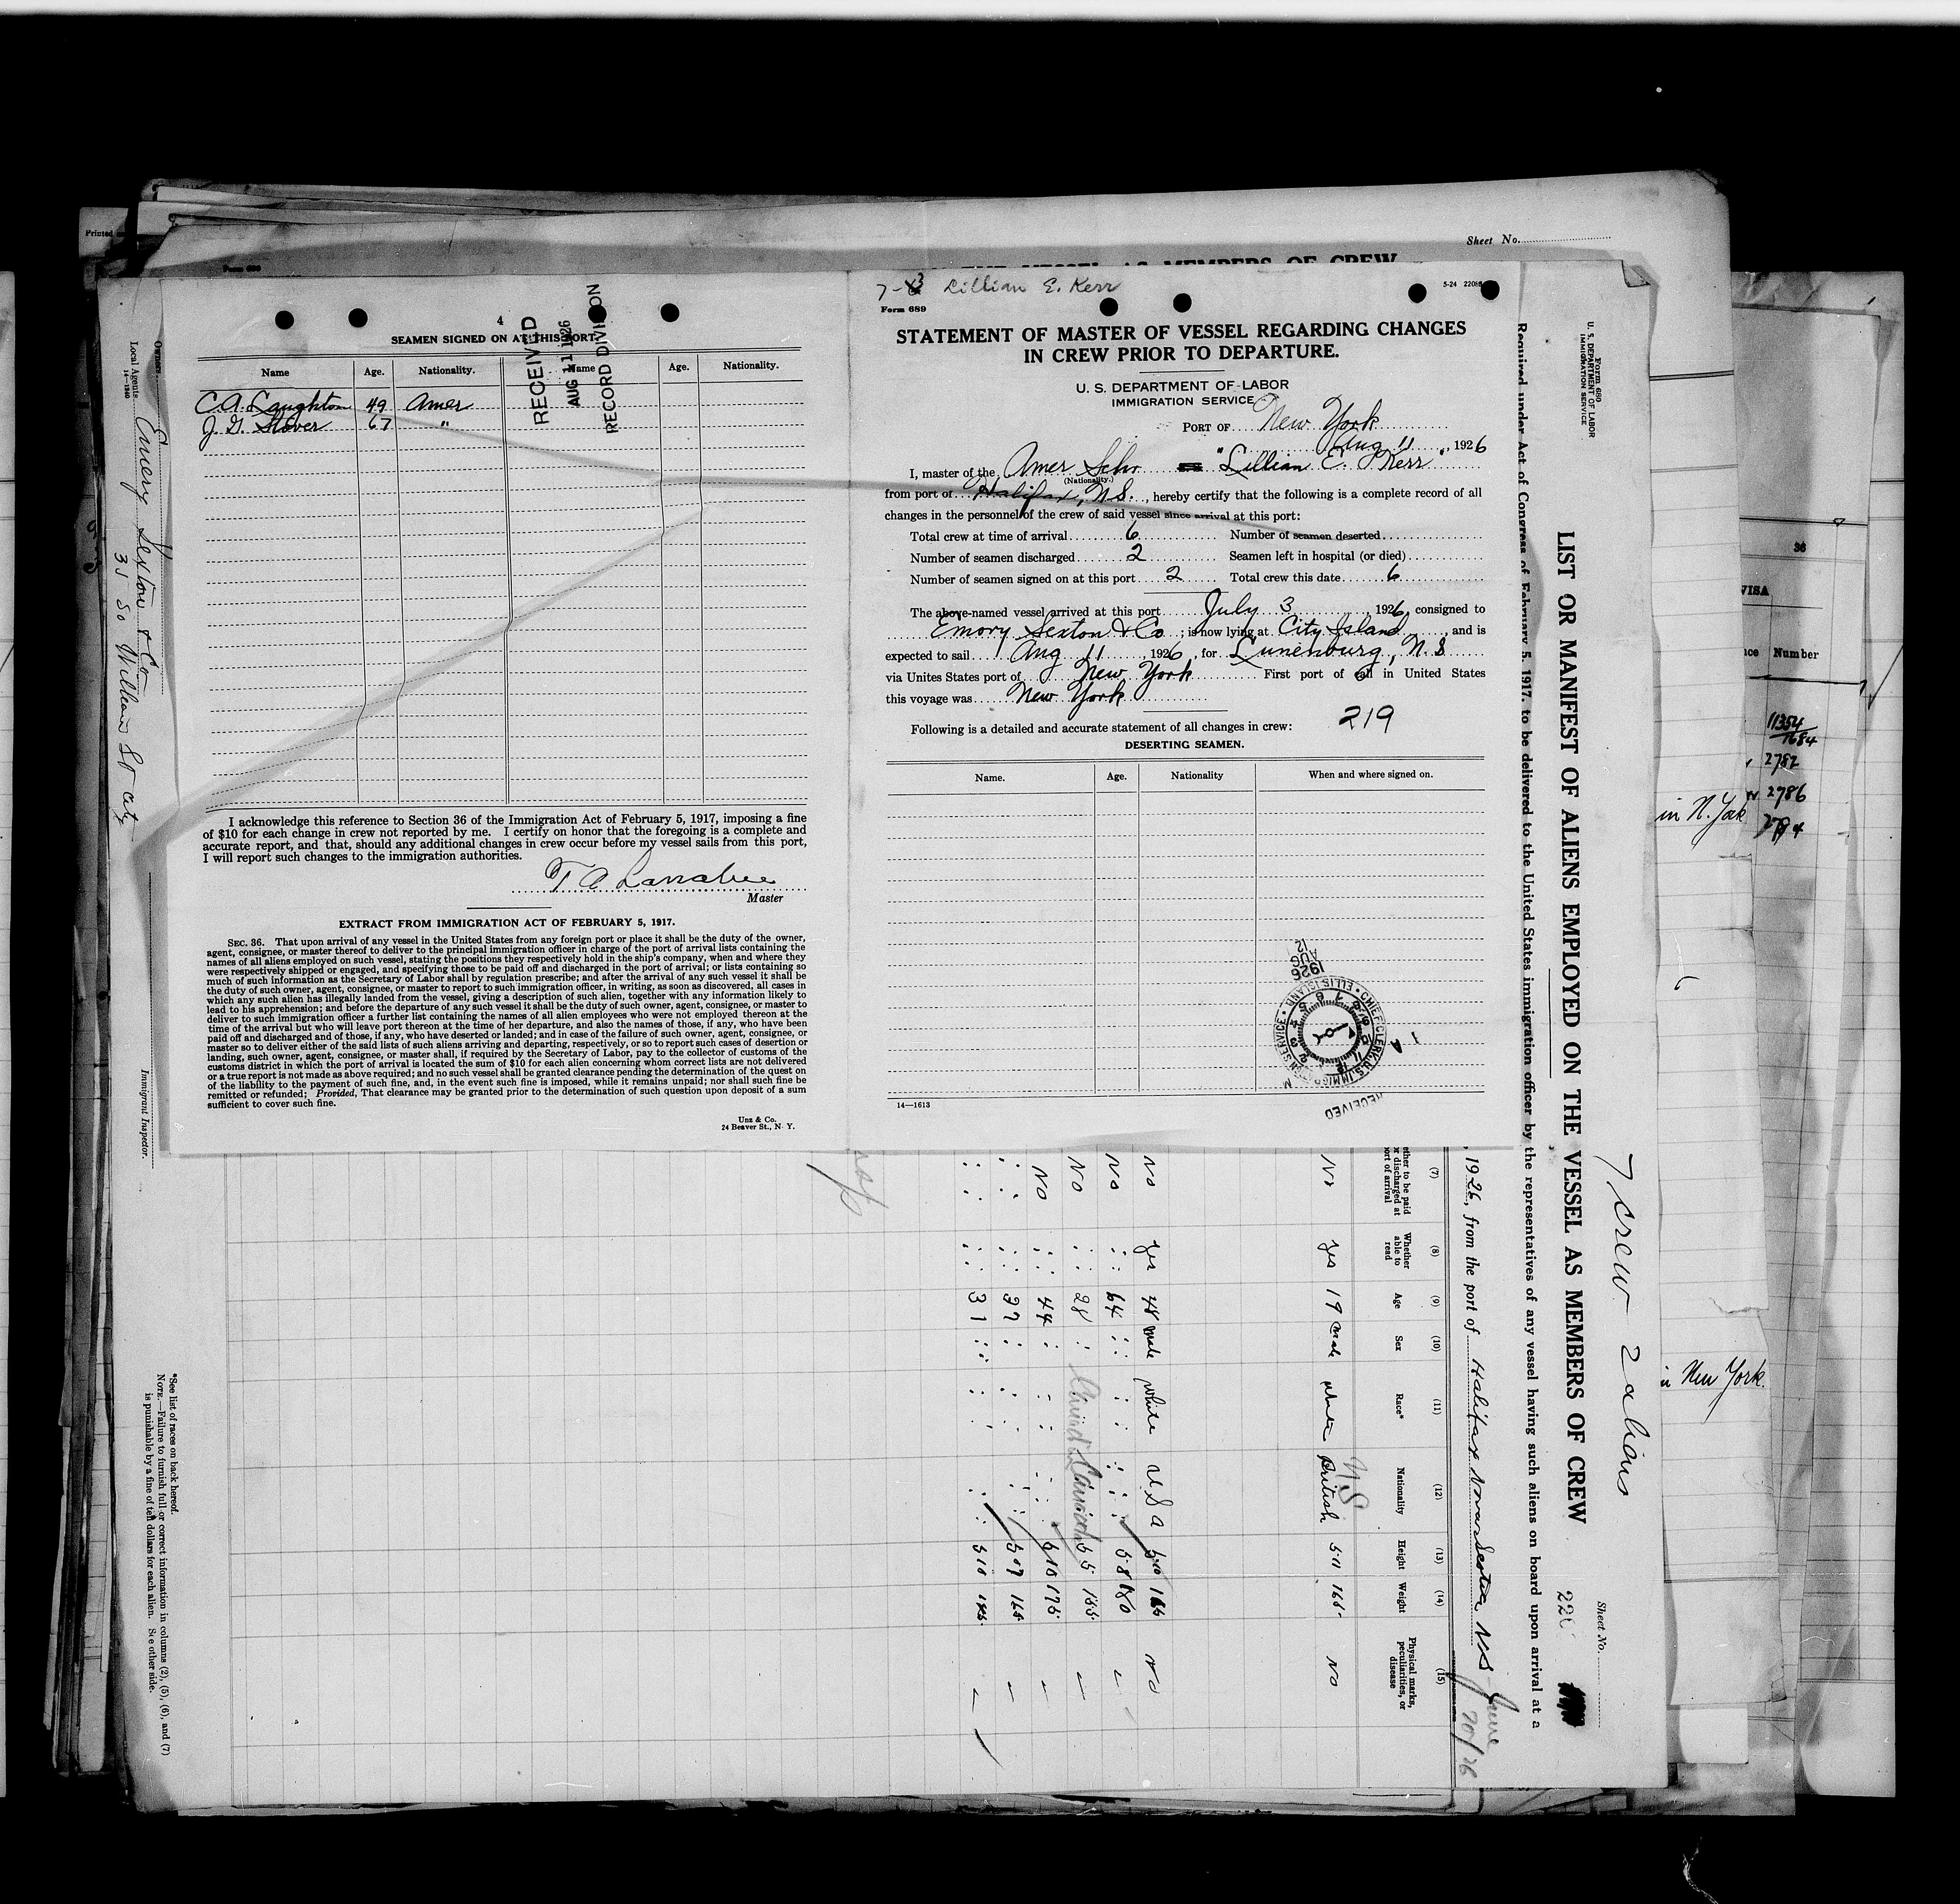 Printed
Sheet No.
7-3 Lillian E. Kerr
Form 689
5-24
STATEMENT OF MASTER OF VESSEL REGARDING CHANGES
IN CREW PRIOR TO DEPARTURE.
U. S. DEPARTMENT OF LABOR
IMMIGRATION SERVICE
PORT OF New York
Aug 11, 1926
I, master of the Amer Schr "Lillian E. Kerr"
(Nationality.)
from port of Halifax, N.S., hereby certify that the following is a complete record of all
changes in the personnel of the crew of said vessel since arrival at this port:
Total crew at time of arrival 6 Number of seamen deserted
Number of seamen discharged 2 Seamen left in hospital (or died)
Number of seamen signed on at this port 2 Total crew this date 6
The above-named vessel arrived at this port July 3, 1926, consigned to
Emory Sexton & Co; is now lying at City Island, and is
expected to sail Aug 11, 1926, for Lunenburg, N.S
via Unites States port of New York First port of call in United States
this voyage was New York
Following is a detailed and accurate statement of all changes in crew: 219
DESERTING SEAMEN.
Name. Age. Nationality When and where signed on.
14—1613
4
SEAMEN SIGNED ON AT THIS PORT.
Name Age. Nationality. Name Age. Nationality.
C.A. Laughton 49 Amer
J. G. Stover 67 "
RECEIVED
AUG 11 1926
RECORD DIVISION
I acknowledge this reference to Section 36 of the Immigration Act of February 5, 1917, imposing a fine
of $10 for each change in crew not reported by me. I certify on honor that the foregoing is a complete and
accurate report, and that, should any additional changes in crew occur before my vessel sails from this port,
I will report such changes to the immigration authorities.
T A Larrabee
Master
EXTRACT FROM IMMIGRATION ACT OF FEBRUARY 5, 1917.
SEC. 36. That upon arrival of any vessel in the United States from any foreign port or place it shall be the duty of the owner,
agent, consignee, or master thereof to deliver to the principal immigration officer in charge of the port of arrival lists containing the
names of all aliens employed on such vessel, stating the positions they respectively hold in the ship's company, when and where they
were respectively shipped or engaged, and specifying those to be paid off and discharged in the port of arrival; or lists containing so
much of such information as the Secretary of Labor shall by regulation prescribe; and after the arrival of any such vessel it shall be
the duty of such owner, agent, consignee, or master to report to such immigration officer, in writing, as soon as discovered, all cases in
which any such alien has illegally landed from the vessel, giving a description of such alien, together with any information likely to
lead to his apprehension; and before the departure of any such vessel it shall be the duty of such owner, agent, consignee, or master to
deliver to such immigration officer a further list containing the names of all alien employees who were not employed thereon at the
time of the arrival but who will leave port thereon at the time of her departure, and also the names of those, if any, who have been
paid off and discharged and of those, if any, who have deserted or landed; and in case of the failure of such owner, agent, consignee, or
master so to deliver either of the said lists of such aliens arriving and departing, respectively, or so to report such cases of desertion or
landing, such owner, agent, consignee, or master shall, if required by the Secretary of Labor, pay to the collector of customs of the
customs district in which the port of arrival is located the sum of $10 for each alien concerning whom correct lists are not delivered
or a true report is not made as above required; and no such vessel shall be granted clearance pending the determination of the quest on
of the liability to the payment of such fine, and, in the event such fine is imposed, while it remains unpaid; nor shall such fine be
remitted or refunded; Provided, That clearance may be granted prior to the determination of such question upon deposit of a sum
sufficient to cover such fine.
Unz & Co.
24 Beaver St., N. Y.
1926
AUG
12
CHIEF CLERK U.S. IMMIGRATION SERVICE • ELLIS ISLAND
RECEIVED
Form 680
U. S. DEPARTMENT OF LABOR
IMMIGRATION SERVICE
7 crew 2 aliens
Sheet No.
LIST OR MANIFEST OF ALIENS EMPLOYED ON THE VESSEL AS MEMBERS OF CREW
Required under Act of Congress of February 5, 1917, to be delivered to the United States immigration officer by the representatives of any vessel having such aliens on board upon arrival at a
, 1926, from the port of Halifax Nova Scotia NS June
(7) (8) (9) (10) (11) (12) (13) (14) (15)
Whether able to read Age Sex Race* Nationality Height Weight Physical marks, peculiarities, or disease
No yes 19 male British 5-11 No
No yes 48 male white U S A No
No 64
No 28
No 44
31
Owners
Local Agents Emery Sexton & Co
14—1240
35 So William St City
Immigrant Inspector.
*See list of races on back hereof.
NOTE.—Failure to furnish full or correct information in columns (2), (5), (6), and (7)
is punishable by a fine of ten dollars for each alien. See other side.
36
VISA
Number
11354
1684
2782
2786
in N. York
in New York.